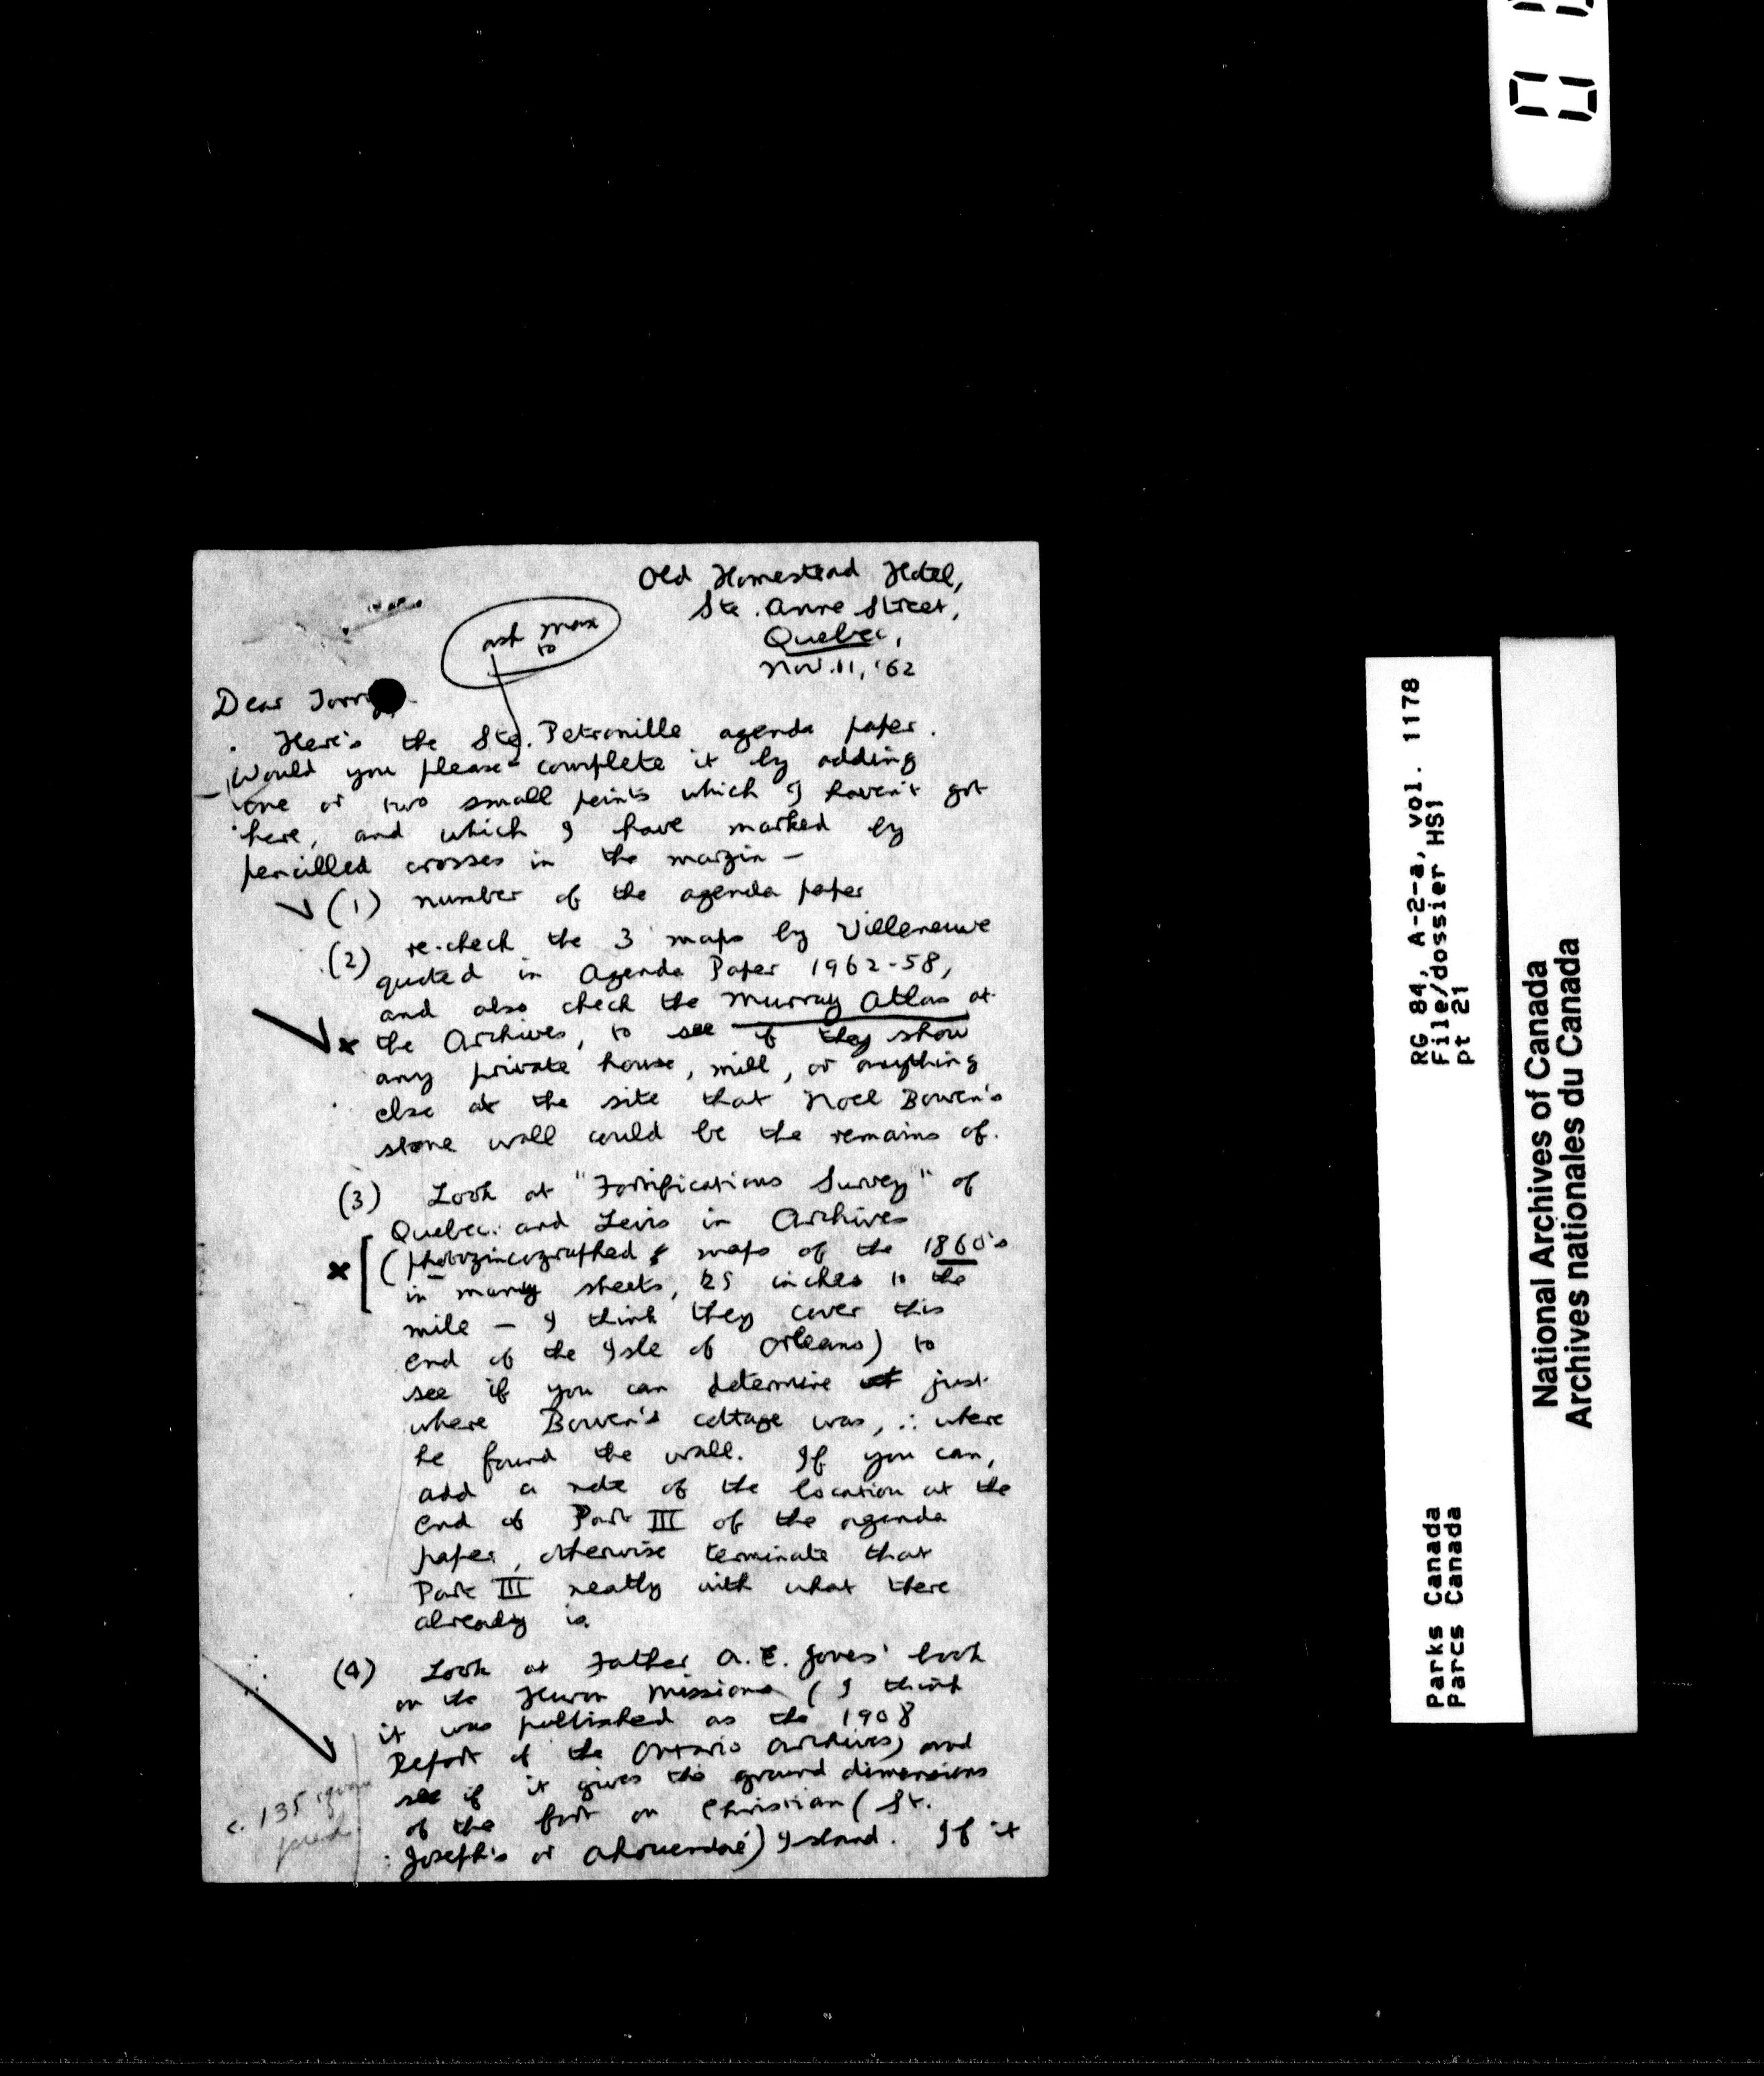 Old Homestead Hotel,
Ste. Anne Street,
Quebec,
Nov. 11, '62
ask max
to
Dear
Here's the Ste. Petronille agenda paper.
Would you please complete it by adding
one or two small points which I haven't got
here, and which I have marked by
pencilled crosses in the margin —
(1) number of the agenda paper
(2) re-check the 3 maps by Villeneuve
quoted in Agenda Paper 1962-58,
and also check the Murray Atlas at
x the Archives, to see if they show
any private house, mill, or anything
else at the site that Noel Bowen's
stone wall could be the remains of.
(3) Look at "Fortifications Survey" of
Quebec and Levis in Archives
x [(photozincographed maps of the 1860's
in many sheets, 25 inches to the
mile — I think they cover this
end of the Isle of Orleans) to
see if you can determine just
where Bowen's cottage was, ∴ where
he found the wall. If you can,
add a note of the location at the
end of Part III of the agenda
paper, otherwise terminate that
Part III neatly with what there
already is.
(4) Look at Father A. E. Jones' book
on the Huron Missions (I think
it was published as the 1908
Report of the Ontario Archives) and
see if it gives the ground dimensions
of the fort on Christian (St.
Joseph's or Ahouendoé) Island. If it
c. 135
RG 84, A-2-a, vol. 1178
File/dossier HS1
pt 21
Parks Canada
Parcs Canada
National Archives of Canada
Archives nationales du Canada